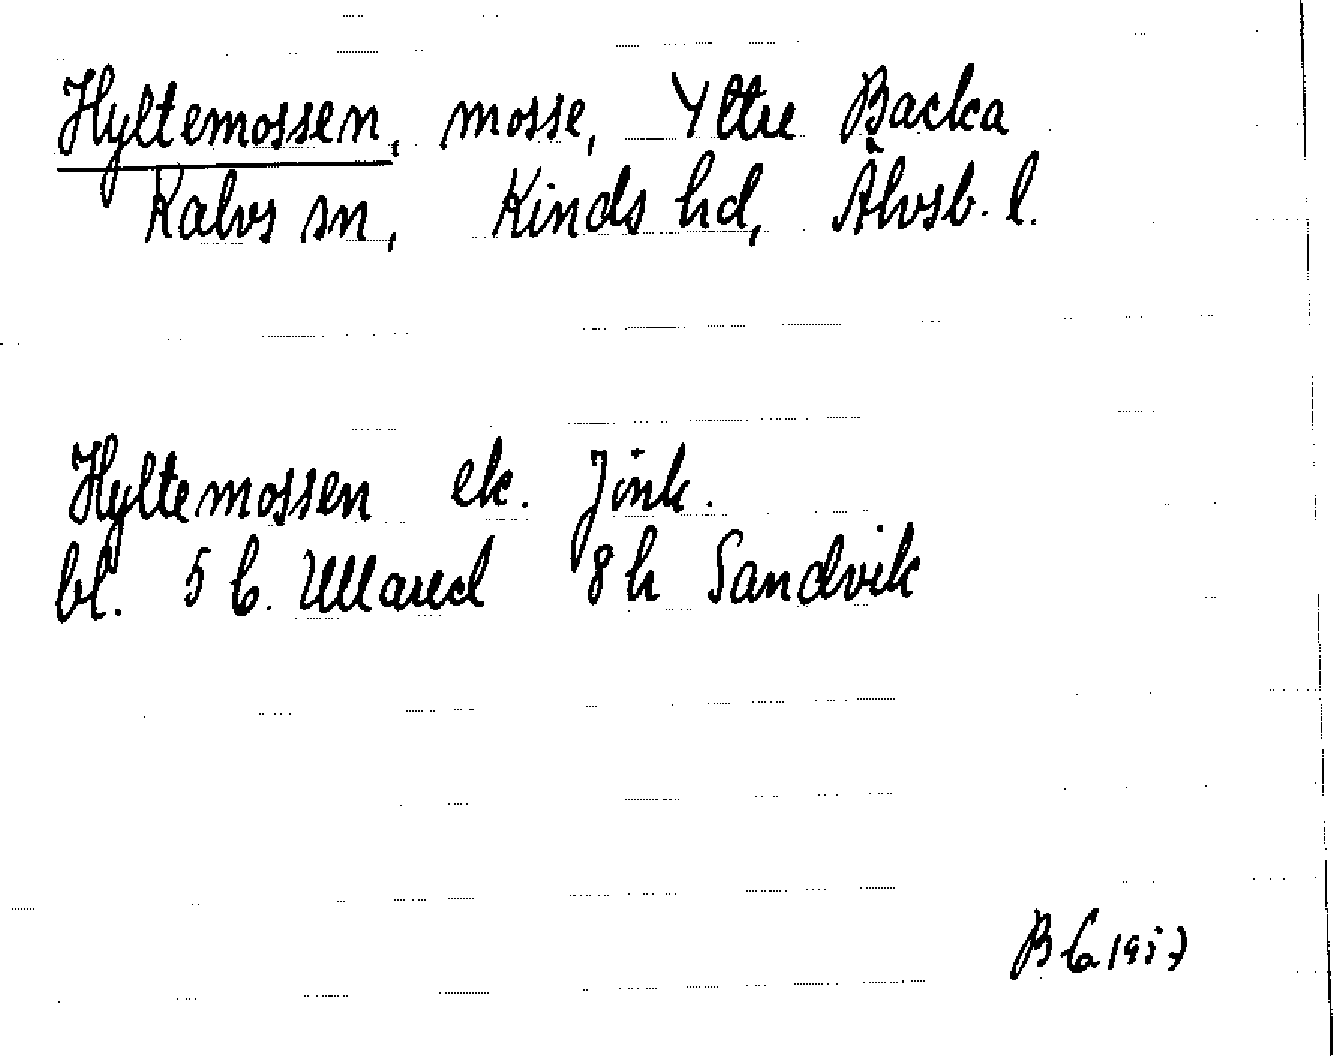 Hyltemossen, mosse, Yttre Backa
Kalvs sn, Kinds hd, Älvsb. l.
Hyltemossen ek. Jönk.
bl. 5 C. Ullared 8h Sandvik
1957